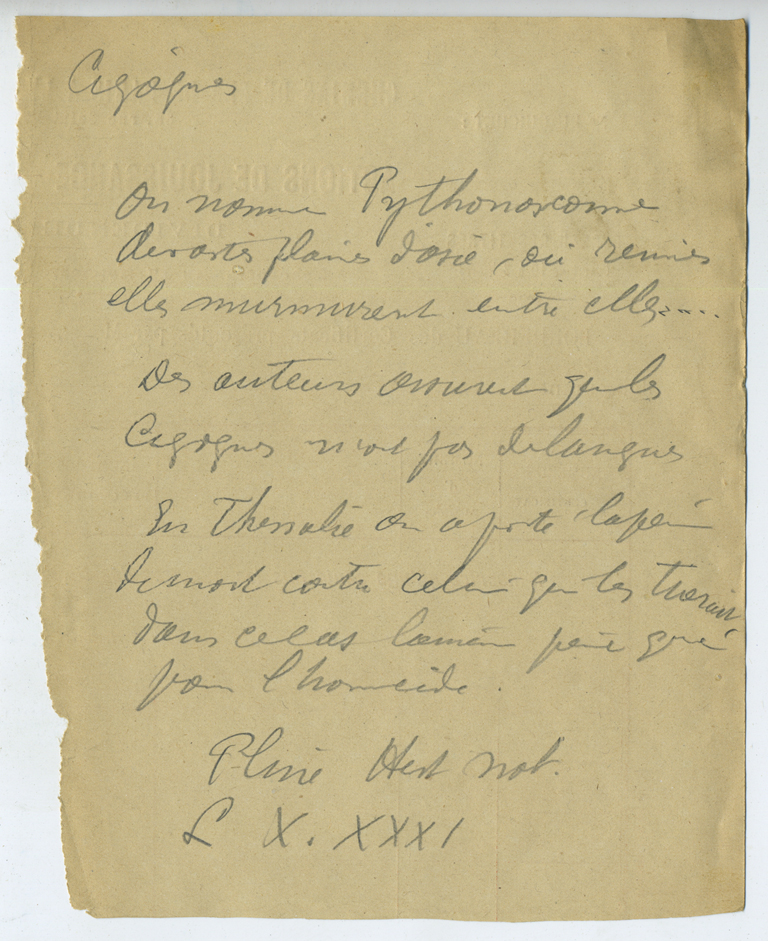 Cigognes
On nomme Pythonoscome
de vastes plaines d'asie, où reunies
elles murmurent entre elles....
Des auteurs assurent que les
Cigognes n'ont pas de langues
En Thessalie on a porté la peine
de mort contre celui qui les tuerait
dans ce cas la même peine que
pour l'homicide.
Pline Hist nat.
L X. XXXI